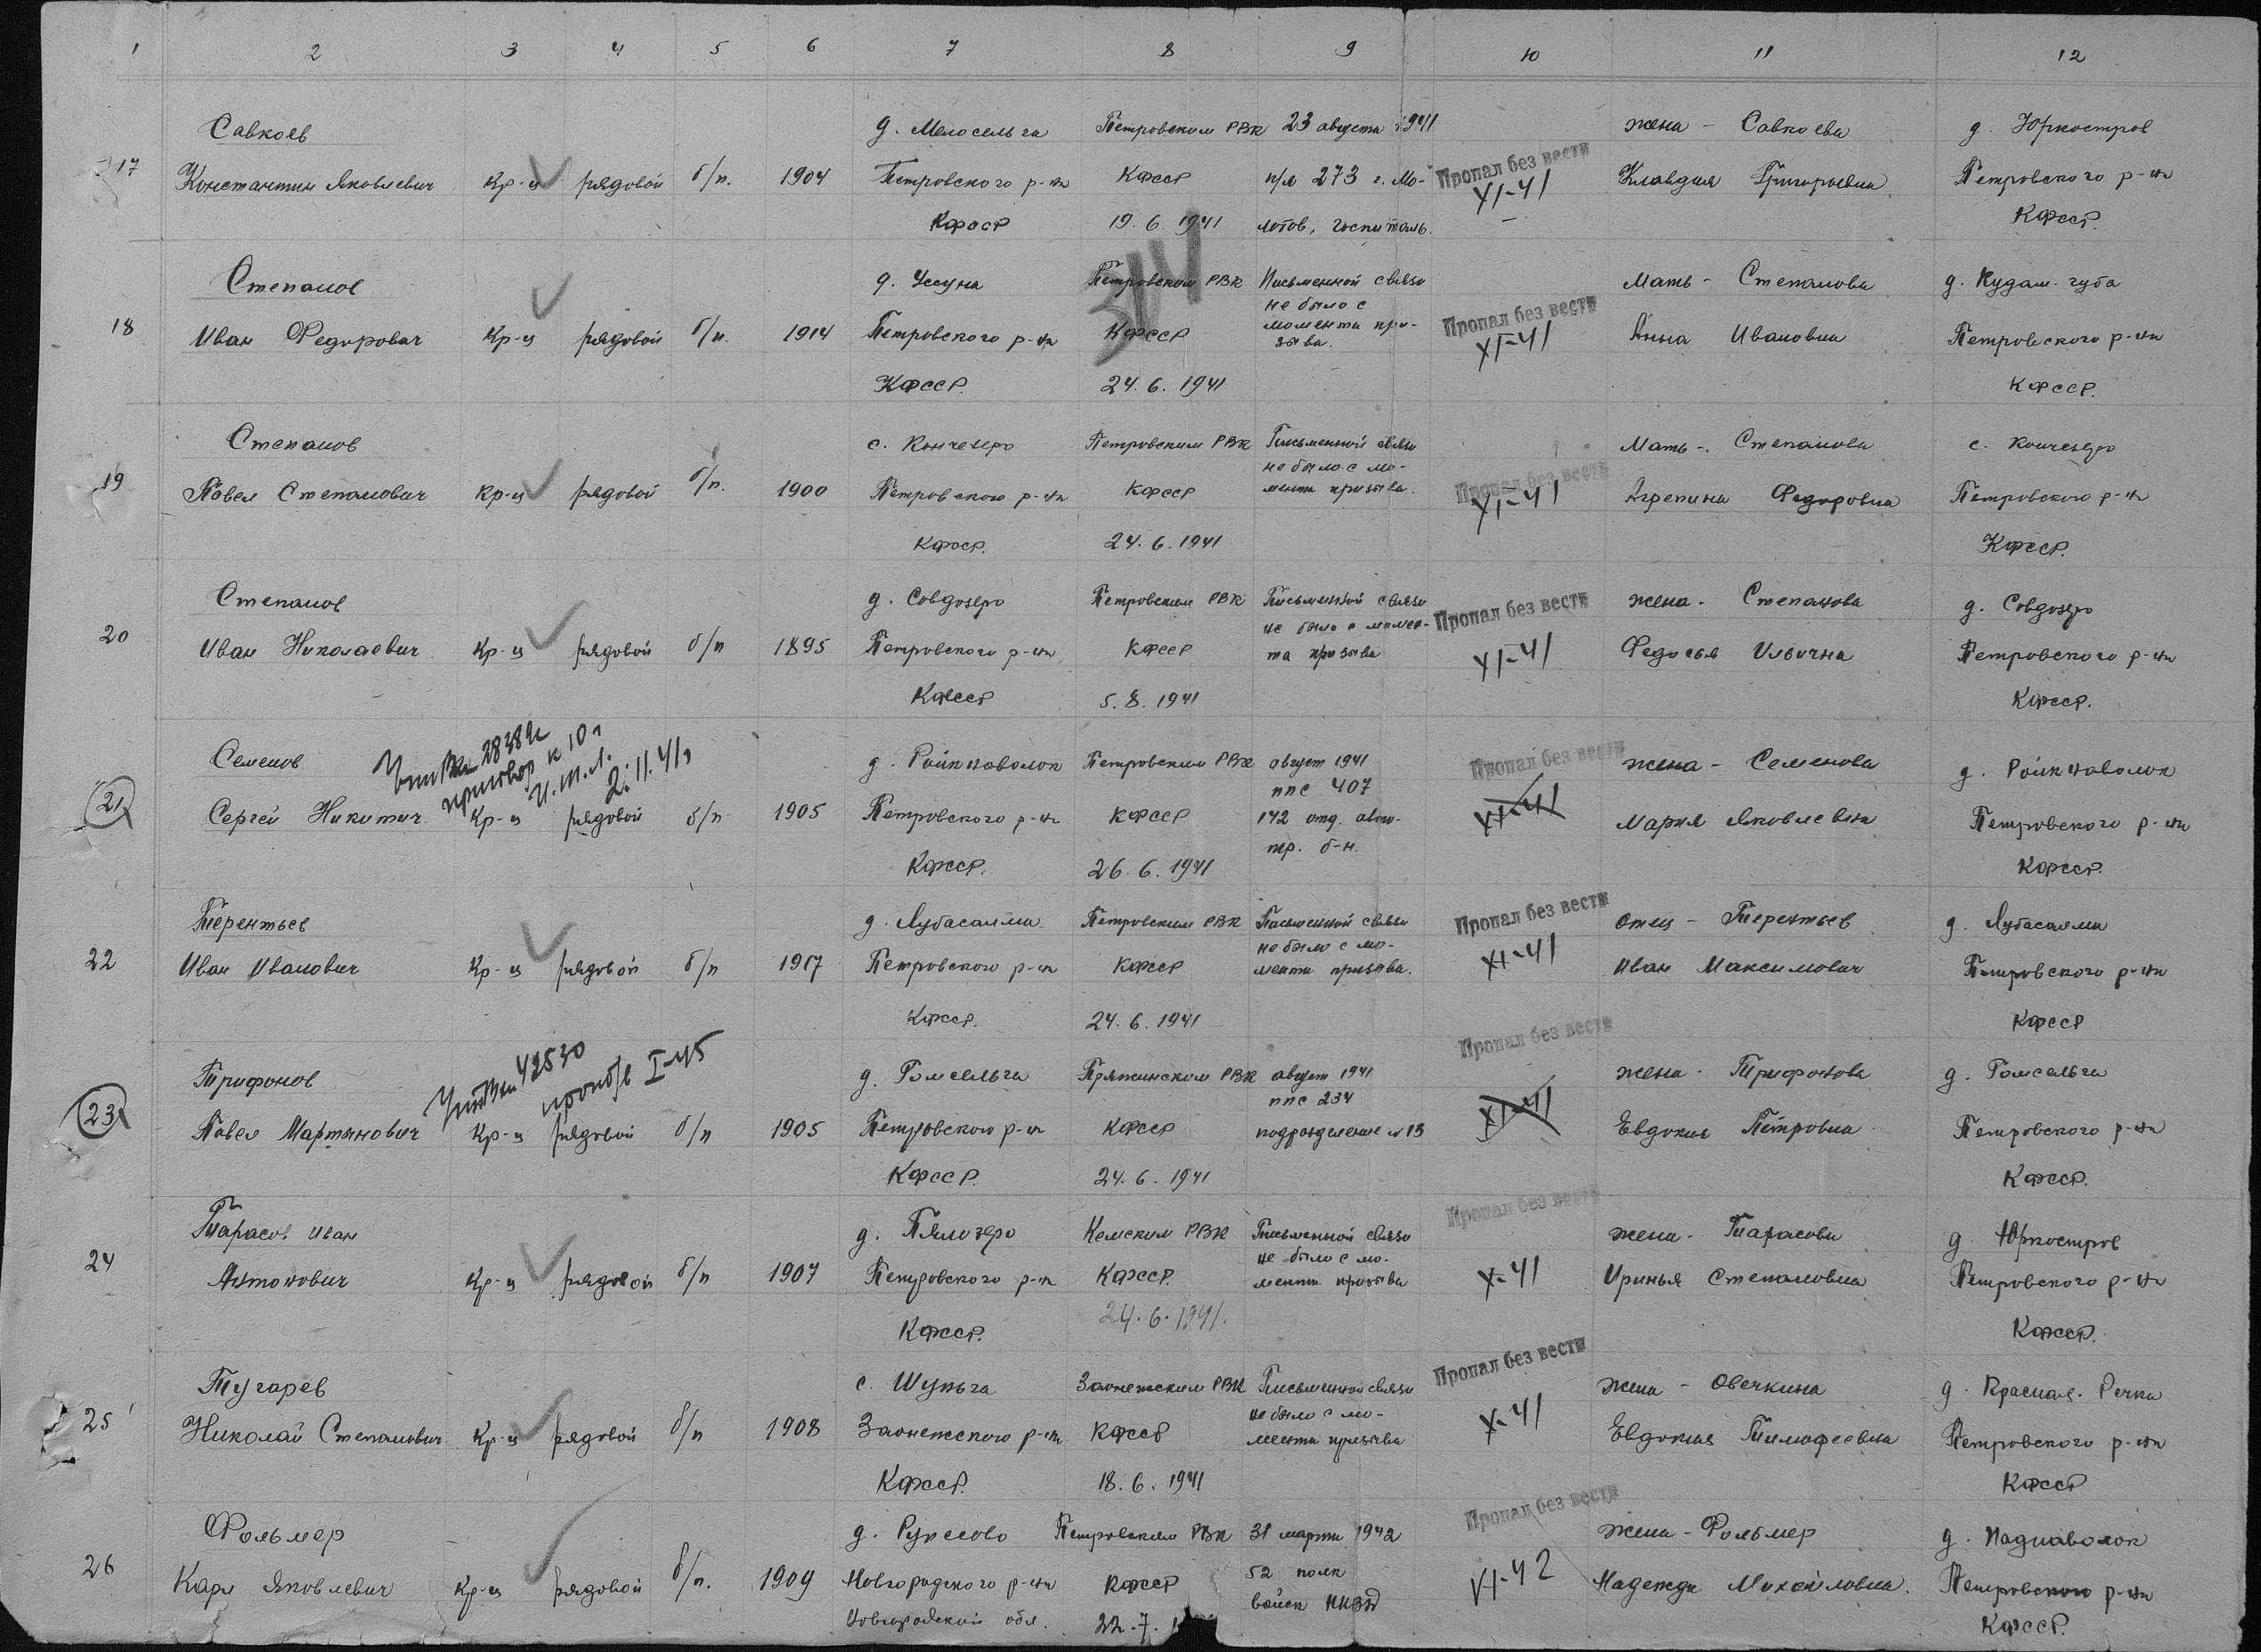 1 2 3 4 5 6 7 8 9 10 11 12
Савкоев д. Мелосельга Петровским РВК 23 августа 1941 жена - Савкоева д. Юркостров
17 Константин Яковлевич Кр-ц рядовой б/п. 1904 Петровского р-на КФССР п/я 273 г. Мо- Пропал без вести Клавдия Григорьевна Петровского р-на
XI-41
КФССР 19.6.1941 лотов, госпиталь. КФССР.
314
Степанов д. Уссуна Петровским РВК Письменной связи мать - Степанова д. Кудам. губа
не было с
18 Иван Федорович Кр-ц рядовой б/п. 1914 Петровского р-на КФССР момента при- Пропал без вести Анна Ивановна Петровского р-на
зыва. XI-41
КФССР. 24.6.1941 КФССР.
Степанов с. Кончезеро Петровским РВК Письменной связи Мать - Степанова с. Кончезеро
не было с мо-
19 Павел Степанович Кр-ц рядовой б/п. 1900 Петровского р-на КФССР мента призыва. Пропал без вести Агрепина Федоровна Петровского р-на
XI-41
КФССР. 24.6.1941 КФССР.
Степанов д. Совдозеро Петровским РВК Письменной связи жена - Степанова д. Совдозеро
не было с момен- Пропал без вести
20 Иван Николаевич Кр-ц рядовой б/п 1895 Петровского р-на КФССР та призыва XI-41 Федосья Ильична Петровского р-на
КФССР 5.8.1941 КФССР.
28389с
приговор к 10 л
И.Т.Л.
2.11.41г
Семенов д. Ройкнаволок Петровским РВК август 1941 Пропал без вести жена - Семенова д. Ройкнаволок
ппс 407
21 Сергей Никитич Кр-ц рядовой б/п 1905 Петровского р-на КФССР 142 отд. авто- XI-41 Мария Яковлевна Петровского р-на
тр. б-н.
КФССР. 26.6.1941 КФССР.
Терентьев д. Лубасалми Петровским РВК Письменной связи Пропал без вести отец - Терентьев д. Лубасалми
не было с мо-
22 Иван Иванович Кр-ц рядовой б/п 1917 Петровского р-на КФССР мента призыва. XI-41 Иван Максимович Петровского р-на
КФССР. 24.6.1941 КФССР
42530
погиб I-45
Трифонов д. Гомсельга Пряжинским РВК август 1941 Пропал без вести жена - Трифонова д. Гомсельга
ппс 234
23 Павел Мартынович Кр-ц рядовой б/п 1905 Петровского р-на КФССР подразделение № 13 XI-41 Евдокия Петровна Петровского р-на
КФССР. 24.6.1941 КФССР.
Тарасов Иван д. Пялозеро Кемским РВК Письменной связи Пропал без вести жена - Тарасова д. Юркостров
не было с мо-
24 Антонович Кр-ц рядовой б/п 1907 Петровского р-на КФССР. мента призыва X-41 Иринья Степановна Петровского р-на
КФССР. 24.6.1941. КФССР.
Тугарев с. Шуньга Заонежским РВК Письменной связи Пропал без вести жена - Овечкина д. Красная. Речка
не было с мо-
25 Николай Степанович Кр-ц рядовой б/п 1908 Заонежского р-на КФССР мента призыва X-41 Евдокия Тимофеевна Петровского р-на
КФССР. 18.6.1941 КФССР
Фольмер д. Руссово Петровским РВК 31 марта 1942 Пропал без вести жена - Фольмер д. Паднаволок
26 Карл Яковлевич Кр-ц рядовой б/п. 1909 Новгородского р-на КФССР 52 полк VI-42 Надежда Михайловна. Петровского р-на
войск НКВД
Новгородской обл. 22.7.1 КФССР.